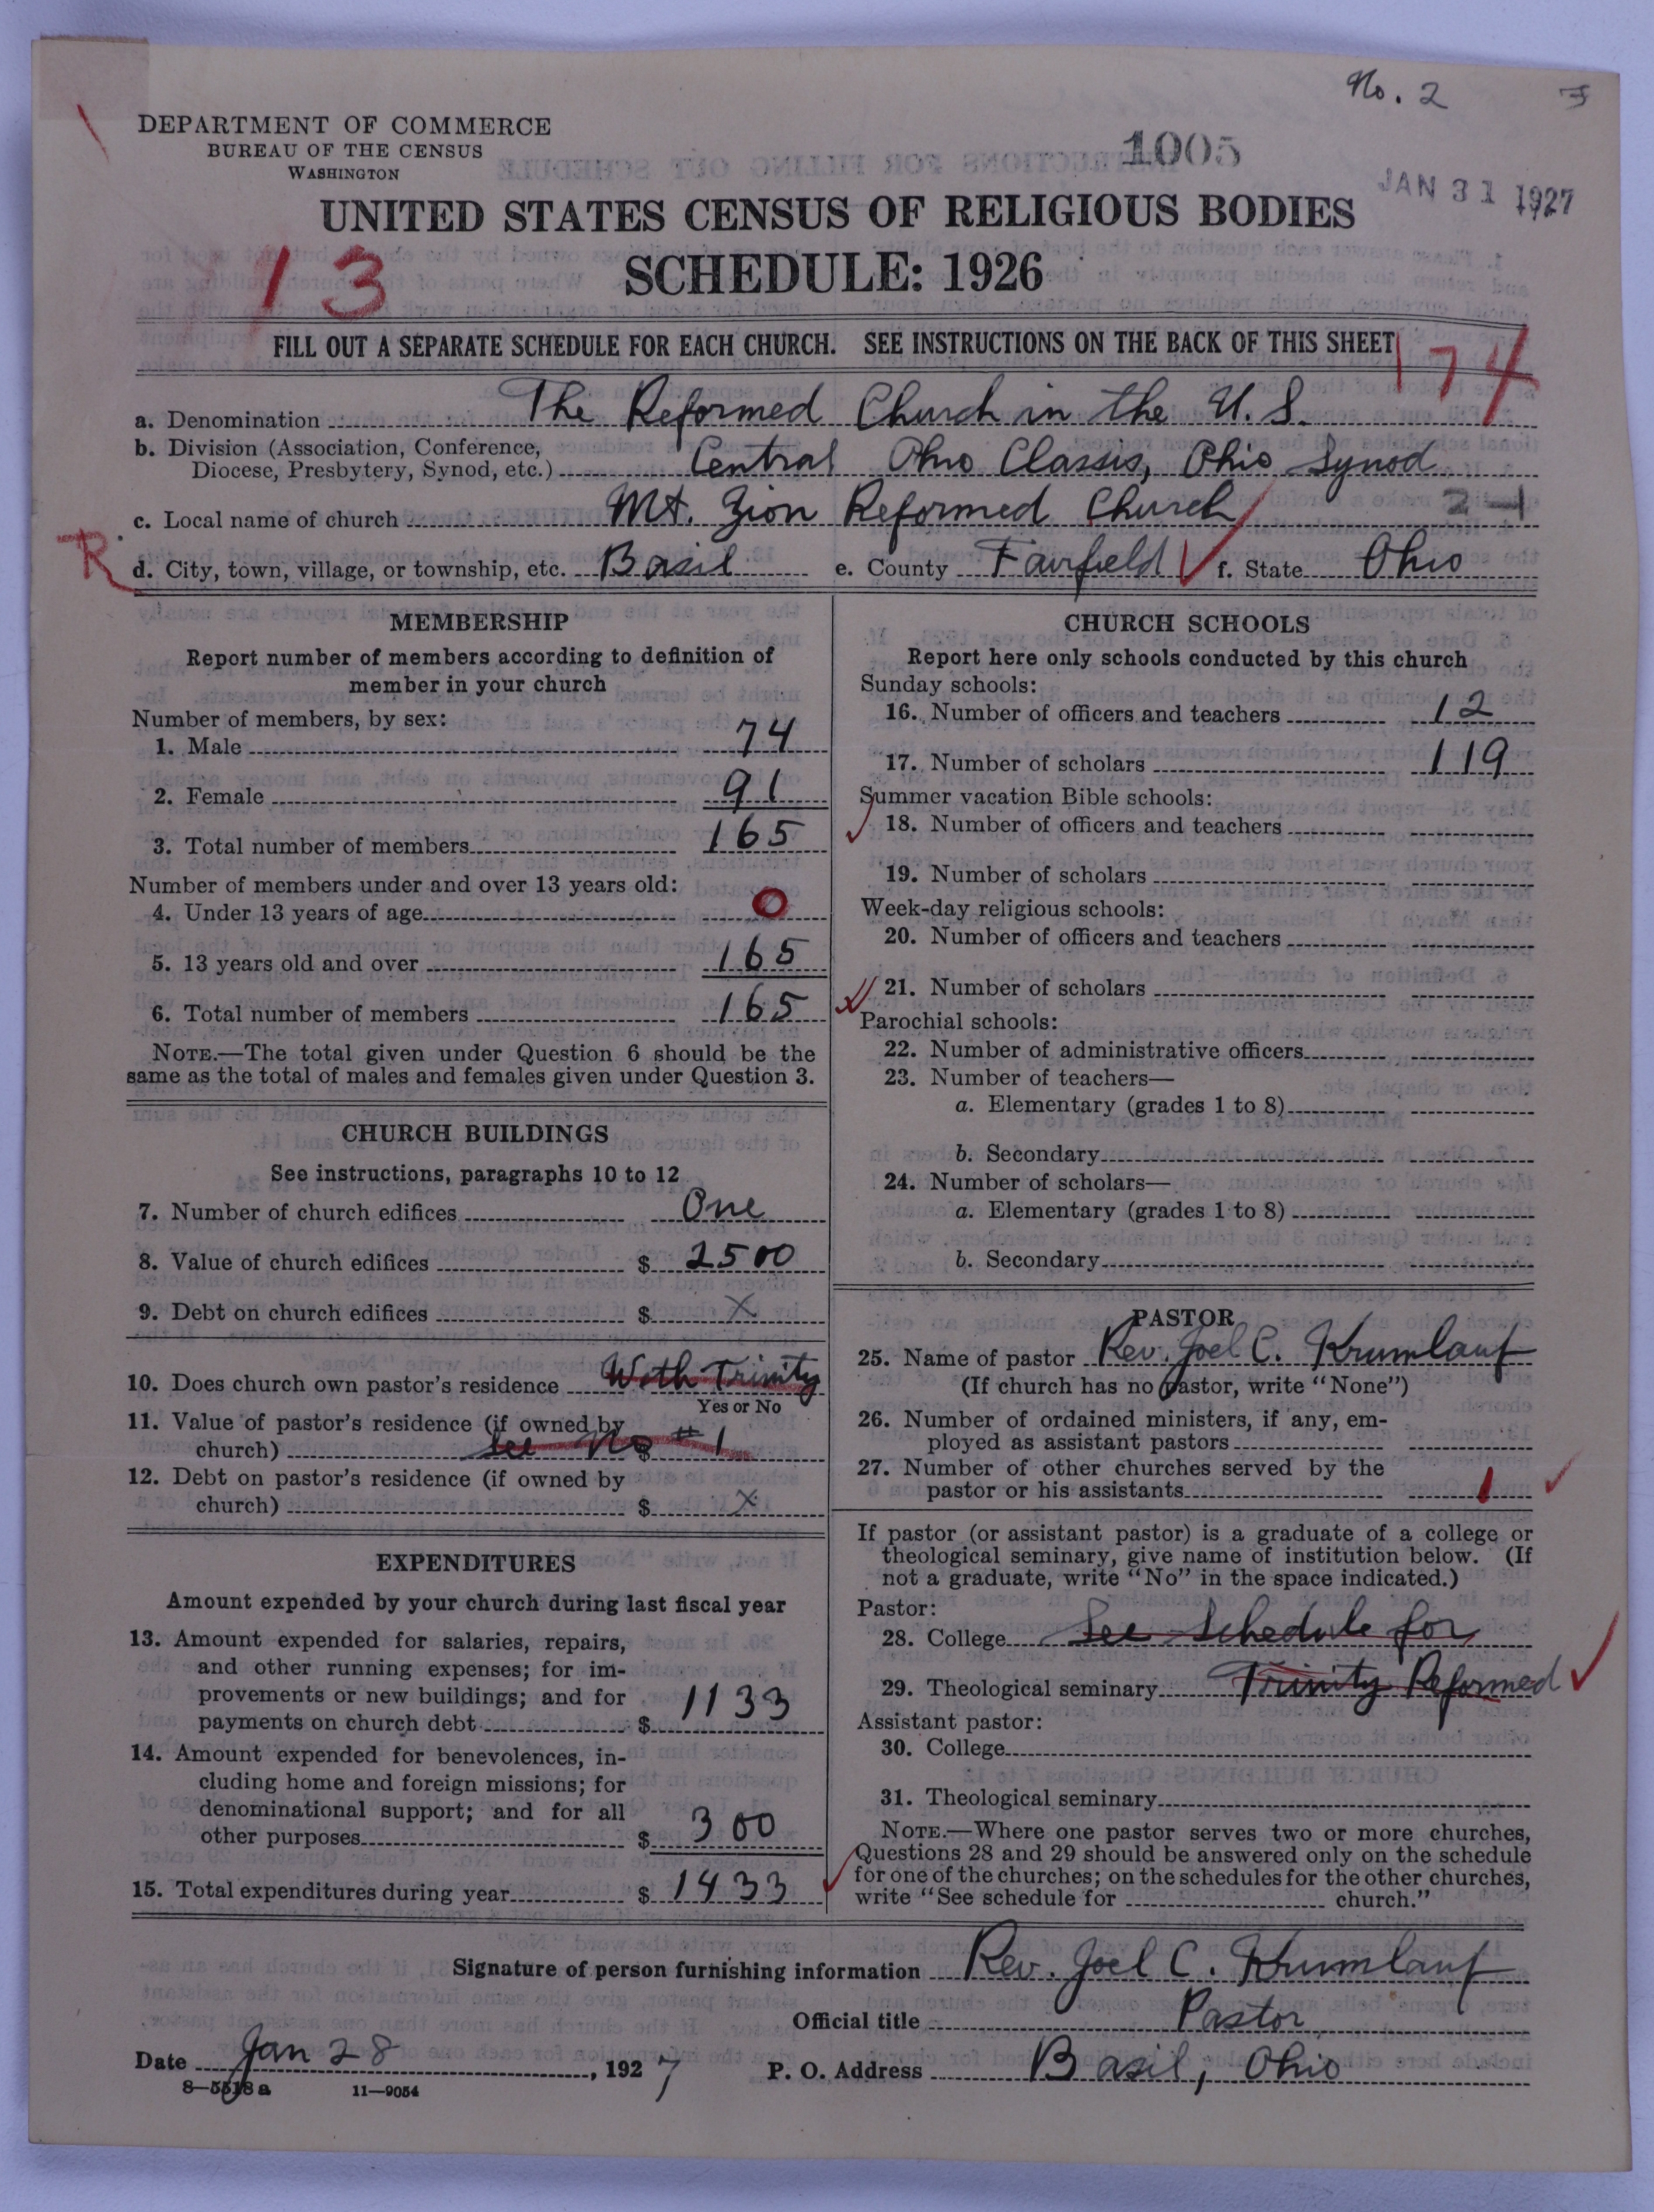 No. 2
DEPARTMENT OF COMMERCE
BUREAU OF THE CENSUS
WASHINGTON
1005
JAN 31 1927
UNITED STATES CENSUS OF RELIGIOUS BODIES
SCHEDULE: 1926
13
FILL OUT A SEPARATE SCHEDULE FOR EACH CHURCH. SEE INSTRUCTIONS ON THE BACK OF THIS SHEET
174
a. Denomination The Reformed Church in the U.S.
b. Division (Association, Conference,
Diocese, Presbytery, Synod, etc.) Central Ohio Classis, Ohio Synod
c. Local name of church Mt. Zion Reformed Church 2-1
R
d. City, town, village, or township, etc. Basil e. County Fairfield f. State Ohio
MEMBERSHIP
Report number of members according to definition of
member in your church
Number of members, by sex:
1. Male 74
2. Female 91
3. Total number of members 165
Number of members under and over 13 years old:
4. Under 13 years of age 0
5. 13 years old and over 165
6. Total number of members 165
NOTE.—The total given under Question 6 should be the
same as the total of males and females given under Question 3.
CHURCH BUILDINGS
See instructions, paragraphs 10 to 12
7. Number of church edifices One
8. Value of church edifices $ 2500
9. Debt on church edifices $ X
10. Does church own pastor's residence With Trinity
Yes or No
11. Value of pastor's residence (if owned by
church) $ See No #1
12. Debt on pastor's residence (if owned by
church) $ X
EXPENDITURES
Amount expended by your church during last fiscal year
13. Amount expended for salaries, repairs,
and other running expenses; for im-
provements or new buildings; and for
payments on church debt $ 1133
14. Amount expended for benevolences, in-
cluding home and foreign missions; for
denominational support; and for all
other purposes $ 300
15. Total expenditures during year $ 1433
CHURCH SCHOOLS
Report here only schools conducted by this church
Sunday schools:
16. Number of officers and teachers 12
17. Number of scholars 119
Summer vacation Bible schools:
18. Number of officers and teachers
19. Number of scholars
Week-day religious schools:
20. Number of officers and teachers
21. Number of scholars
Parochial schools:
22. Number of administrative officers
23. Number of teachers—
a. Elementary (grades 1 to 8)
b. Secondary
24. Number of scholars—
a. Elementary (grades 1 to 8)
b. Secondary
PASTOR
25. Name of pastor Rev. Joel C. Krumlauf
(If church has no pastor, write "None")
26. Number of ordained ministers, if any, em-
ployed as assistant pastors
27. Number of other churches served by the
pastor or his assistants 1
If pastor (or assistant pastor) is a graduate of a college or
theological seminary, give name of institution below. (If
not a graduate, write "No" in the space indicated.)
Pastor:
28. College See Schedule for
29. Theological seminary Trinity Reformed
Assistant pastor:
30. College
31. Theological seminary
NOTE.—Where one pastor serves two or more churches,
Questions 28 and 29 should be answered only on the schedule
for one of the churches; on the schedules for the other churches,
write "See schedule for church."
Signature of person furnishing information Rev. Joel C. Krumlauf
Official title Pastor
Date Jan 28, 1927 P. O. Address Basil, Ohio
8—5518 a 11—9054